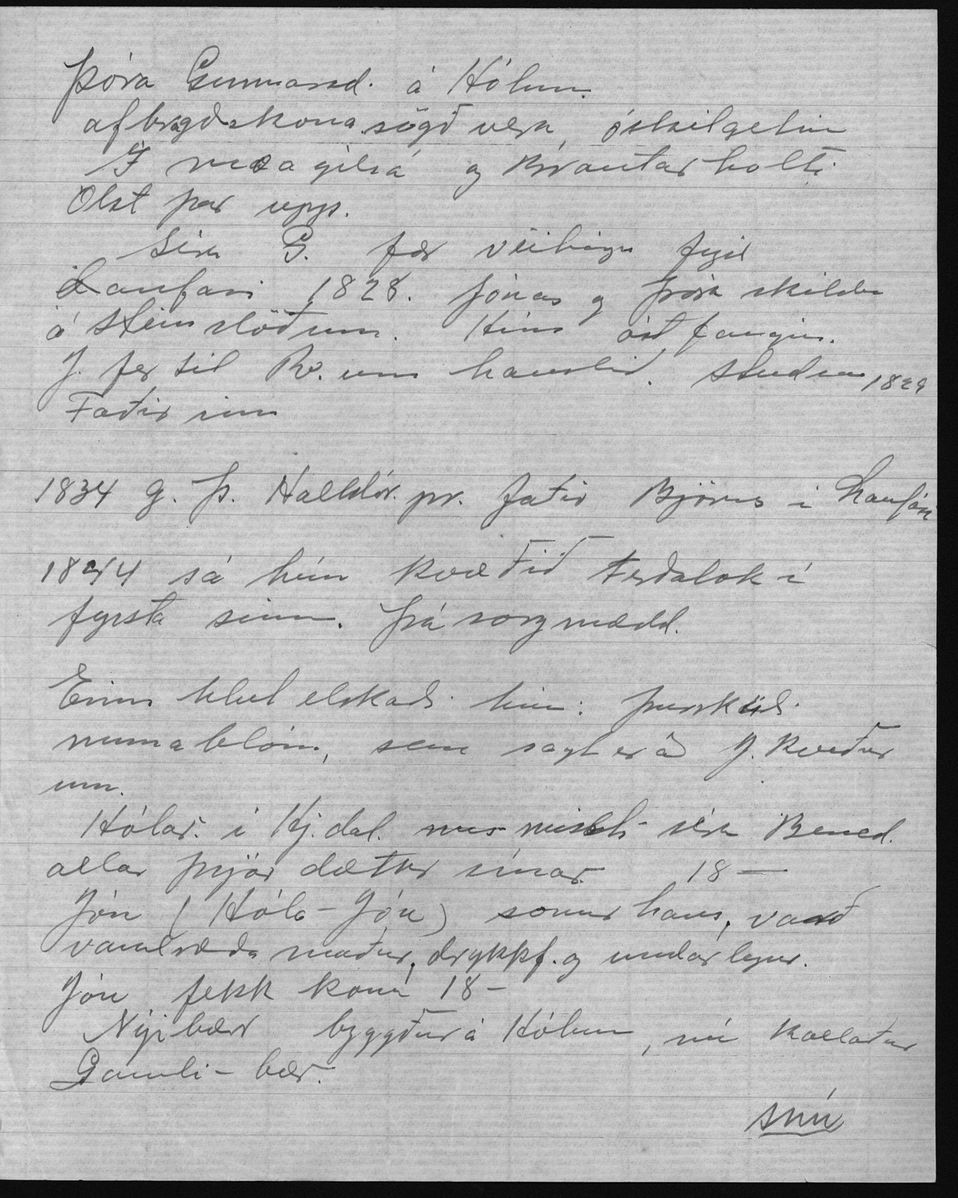 Þóra Gunnarsd. á Hólum.
afbragðskona sögð vera, óskilgetin
Í og Brautarholti
Ólst þar upp.
Síra G. fær veitingu fyrir
Laufási 1828. Jónas og Þóra skildu
á Steinsstöðum. Hún ástfangin.
J. fer til Rv. um haustið. Student 1829
Faðirinn
1834 g. Þ. Halldór. pr. faðir Björns í Laufási
1844 sá hún kvæðið Ferðalok í
fyrsta sinn. Þá sorgmædd.
Einn hlut elskaði hún: þurrkuð
blóm, sem sagt er að J. kveður
um.
Hólar. í Hj.dal. missti síra Bened.
allar þrjár dætur sínar 18—
Jón (Hóla-Jón) sonur hans, varð
vandræðamaður, drykkf. og undarlegur.
Jón fekk konu 18—
Nýibær byggður á Hólum, nú kallaður
Gamli-bær.
snú